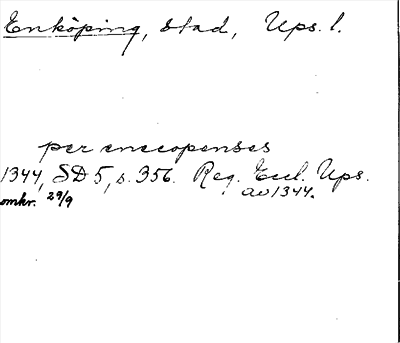 Enköping, stad, Ups. l.
per enecopenses
1344, SD 5, s. 356. Reg. Eccl. Ups.
omkr. 29/9 av 1344.